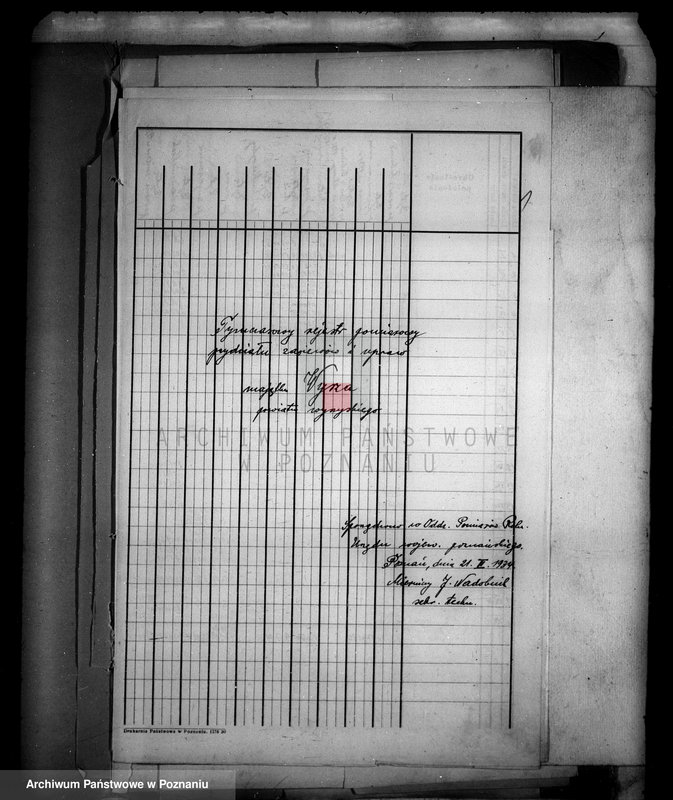 Tymczasowy rejestr pomiarowy
przydziału zasiewów i upraw
majątku Wyza
powiatu wyrzyskiego
ARCHIWUM PAŃSTWOWE
W POZNANIU
Sporządzono w Oddz. Pomiarów Roln.
Urzędu wojew. poznańskiego.
Poznań, dnia 21. II. 1934.
Mierniczy J. Nadobnik
sekr. techn.
Drukarnia Państwowa w Poznaniu.
Archiwum Państwowe w Poznaniu